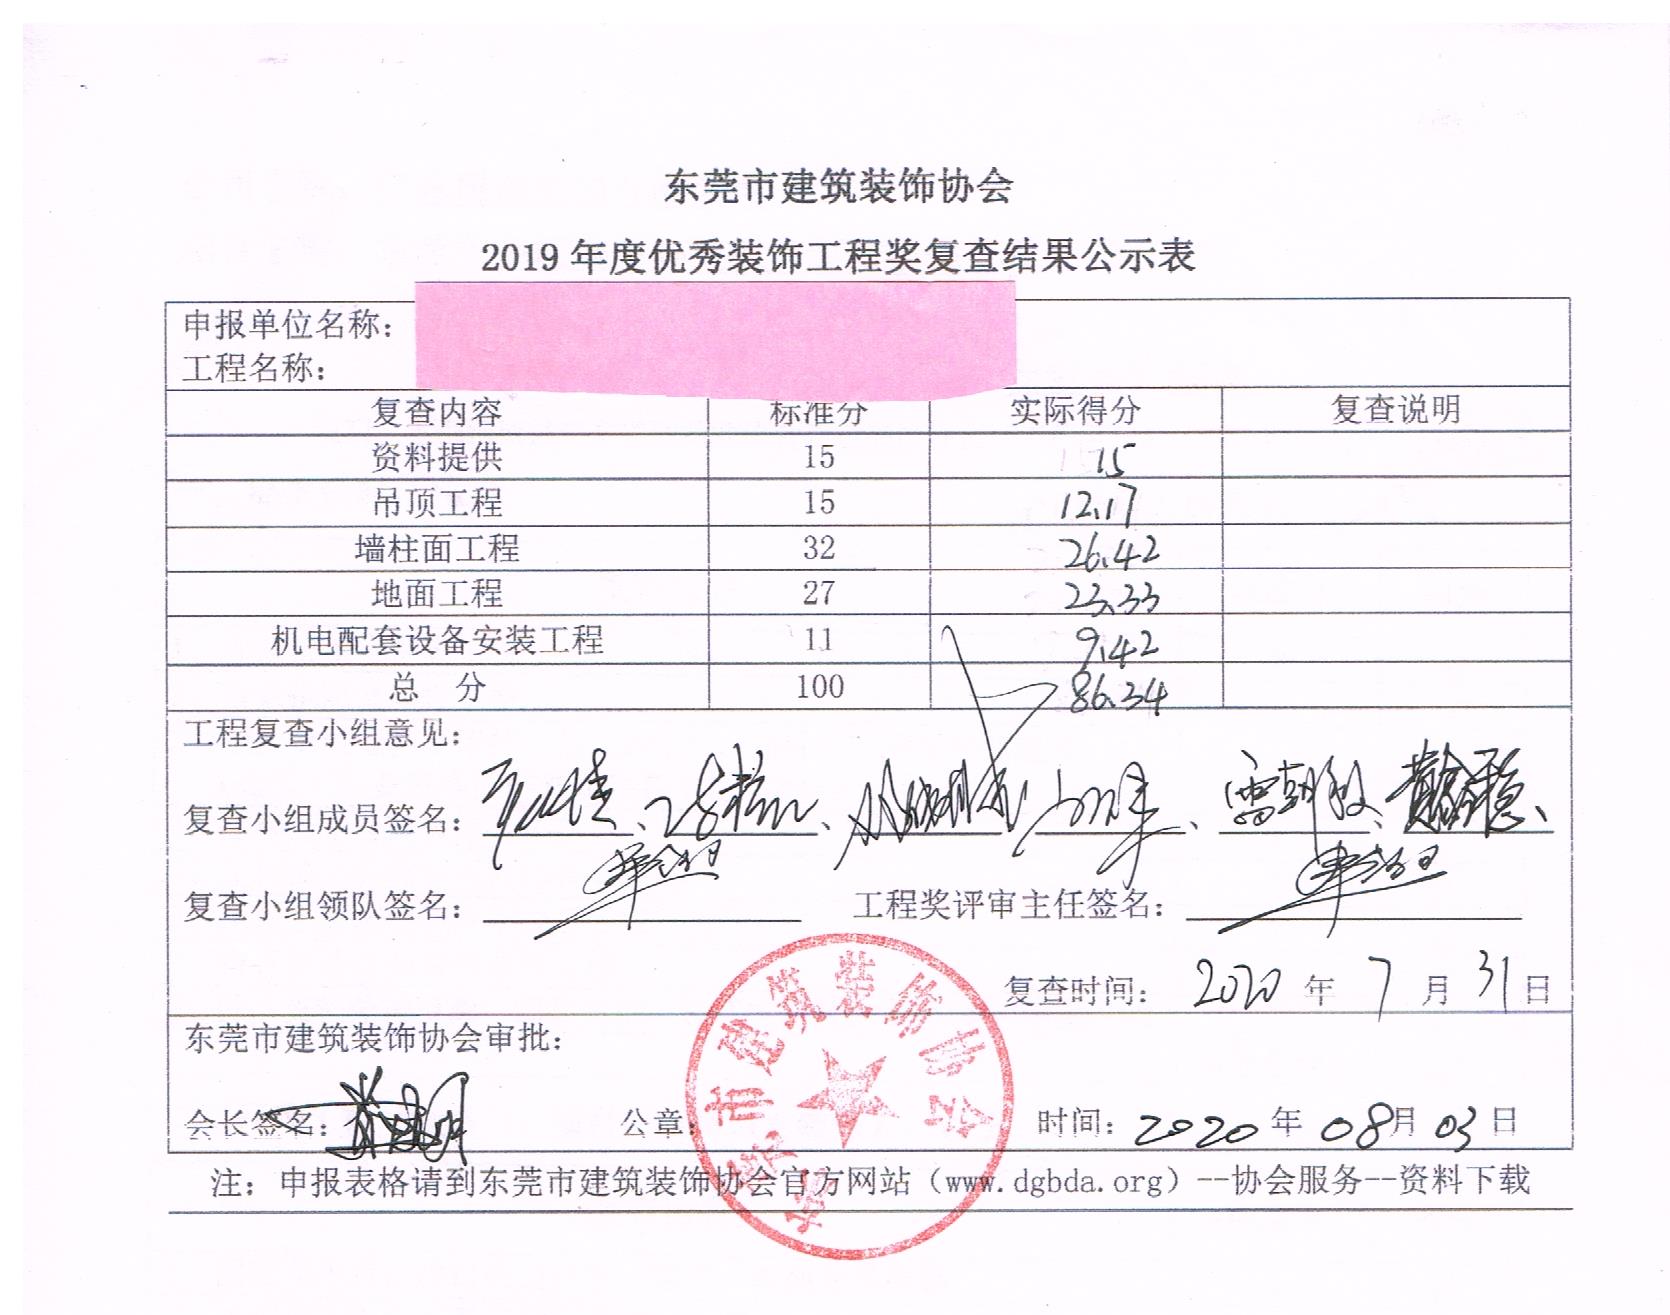 东莞市建筑装饰协会
2019 年度优秀装饰工程奖复查结果公示表
申报单位名称：
工程名称：
复查内容 标准分 实际得分 复查说明
资料提供 15 15
吊顶工程 15 12.17
墙柱面工程 32 26.42
地面工程 27 23.33
机电配套设备安装工程 11 9.42
总 分 100 86.34
工程复查小组意见：
复查小组成员签名：
复查小组领队签名： 工程奖评审主任签名：
复查时间： 2020 年 7 月 31 日
东莞市建筑装饰协会审批：
会长签名： 公章： 时间：2020 年 08月 03 日
东莞市建筑装饰协会
注：申报表格请到东莞市建筑装饰协会官方网站（www.dgbda.org）--协会服务--资料下载